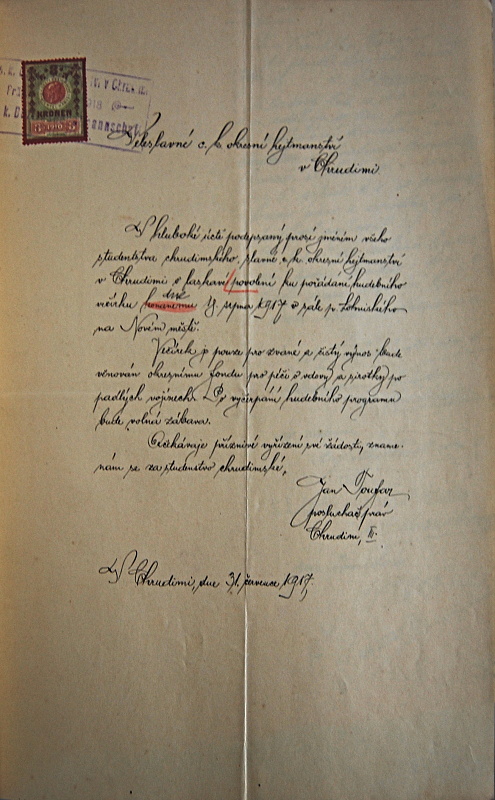 KRONEN
Veleslavné c. k. okresní hejtmanství
v Chrudimi.
V hluboké úctě podepsaný prosí jménem všeho
studentstva chrudimského, slavné c. k. okresní hejtmanství
v Chrudimi o laskavé povolení ku pořádání hudebního
večírku dne 4. srpna 1917 v sále p. Lohniského
na Novém městě.
Večírek je pouze pro zvané a čistý výnos bude
věnován okresnímu fondu pro péči o vdovy a sirotky po
padlých vojínech. Po vyčerpání hudebního programu
bude volná zábava.
Očekávaje příznivé vyřízení své žádosti, zname-
nám se za studentstvo chrudimské,
Jan Toufar
posluchač práv
Chrudim, III.
V Chrudimi, dne 31. července 1917.